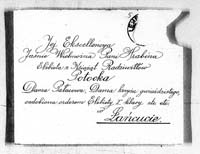 Jej Ekscellencya
Jaśnie Wielmożna Pani Hrabina
Elżbieta z Książąt Radziwiłłów
Potocka
Dama Pałacowa, Dama krzyża gwiaździstego,
ozdobiona orderem Elżbiety I. klasy etc. etc.
w
Łańcucie.